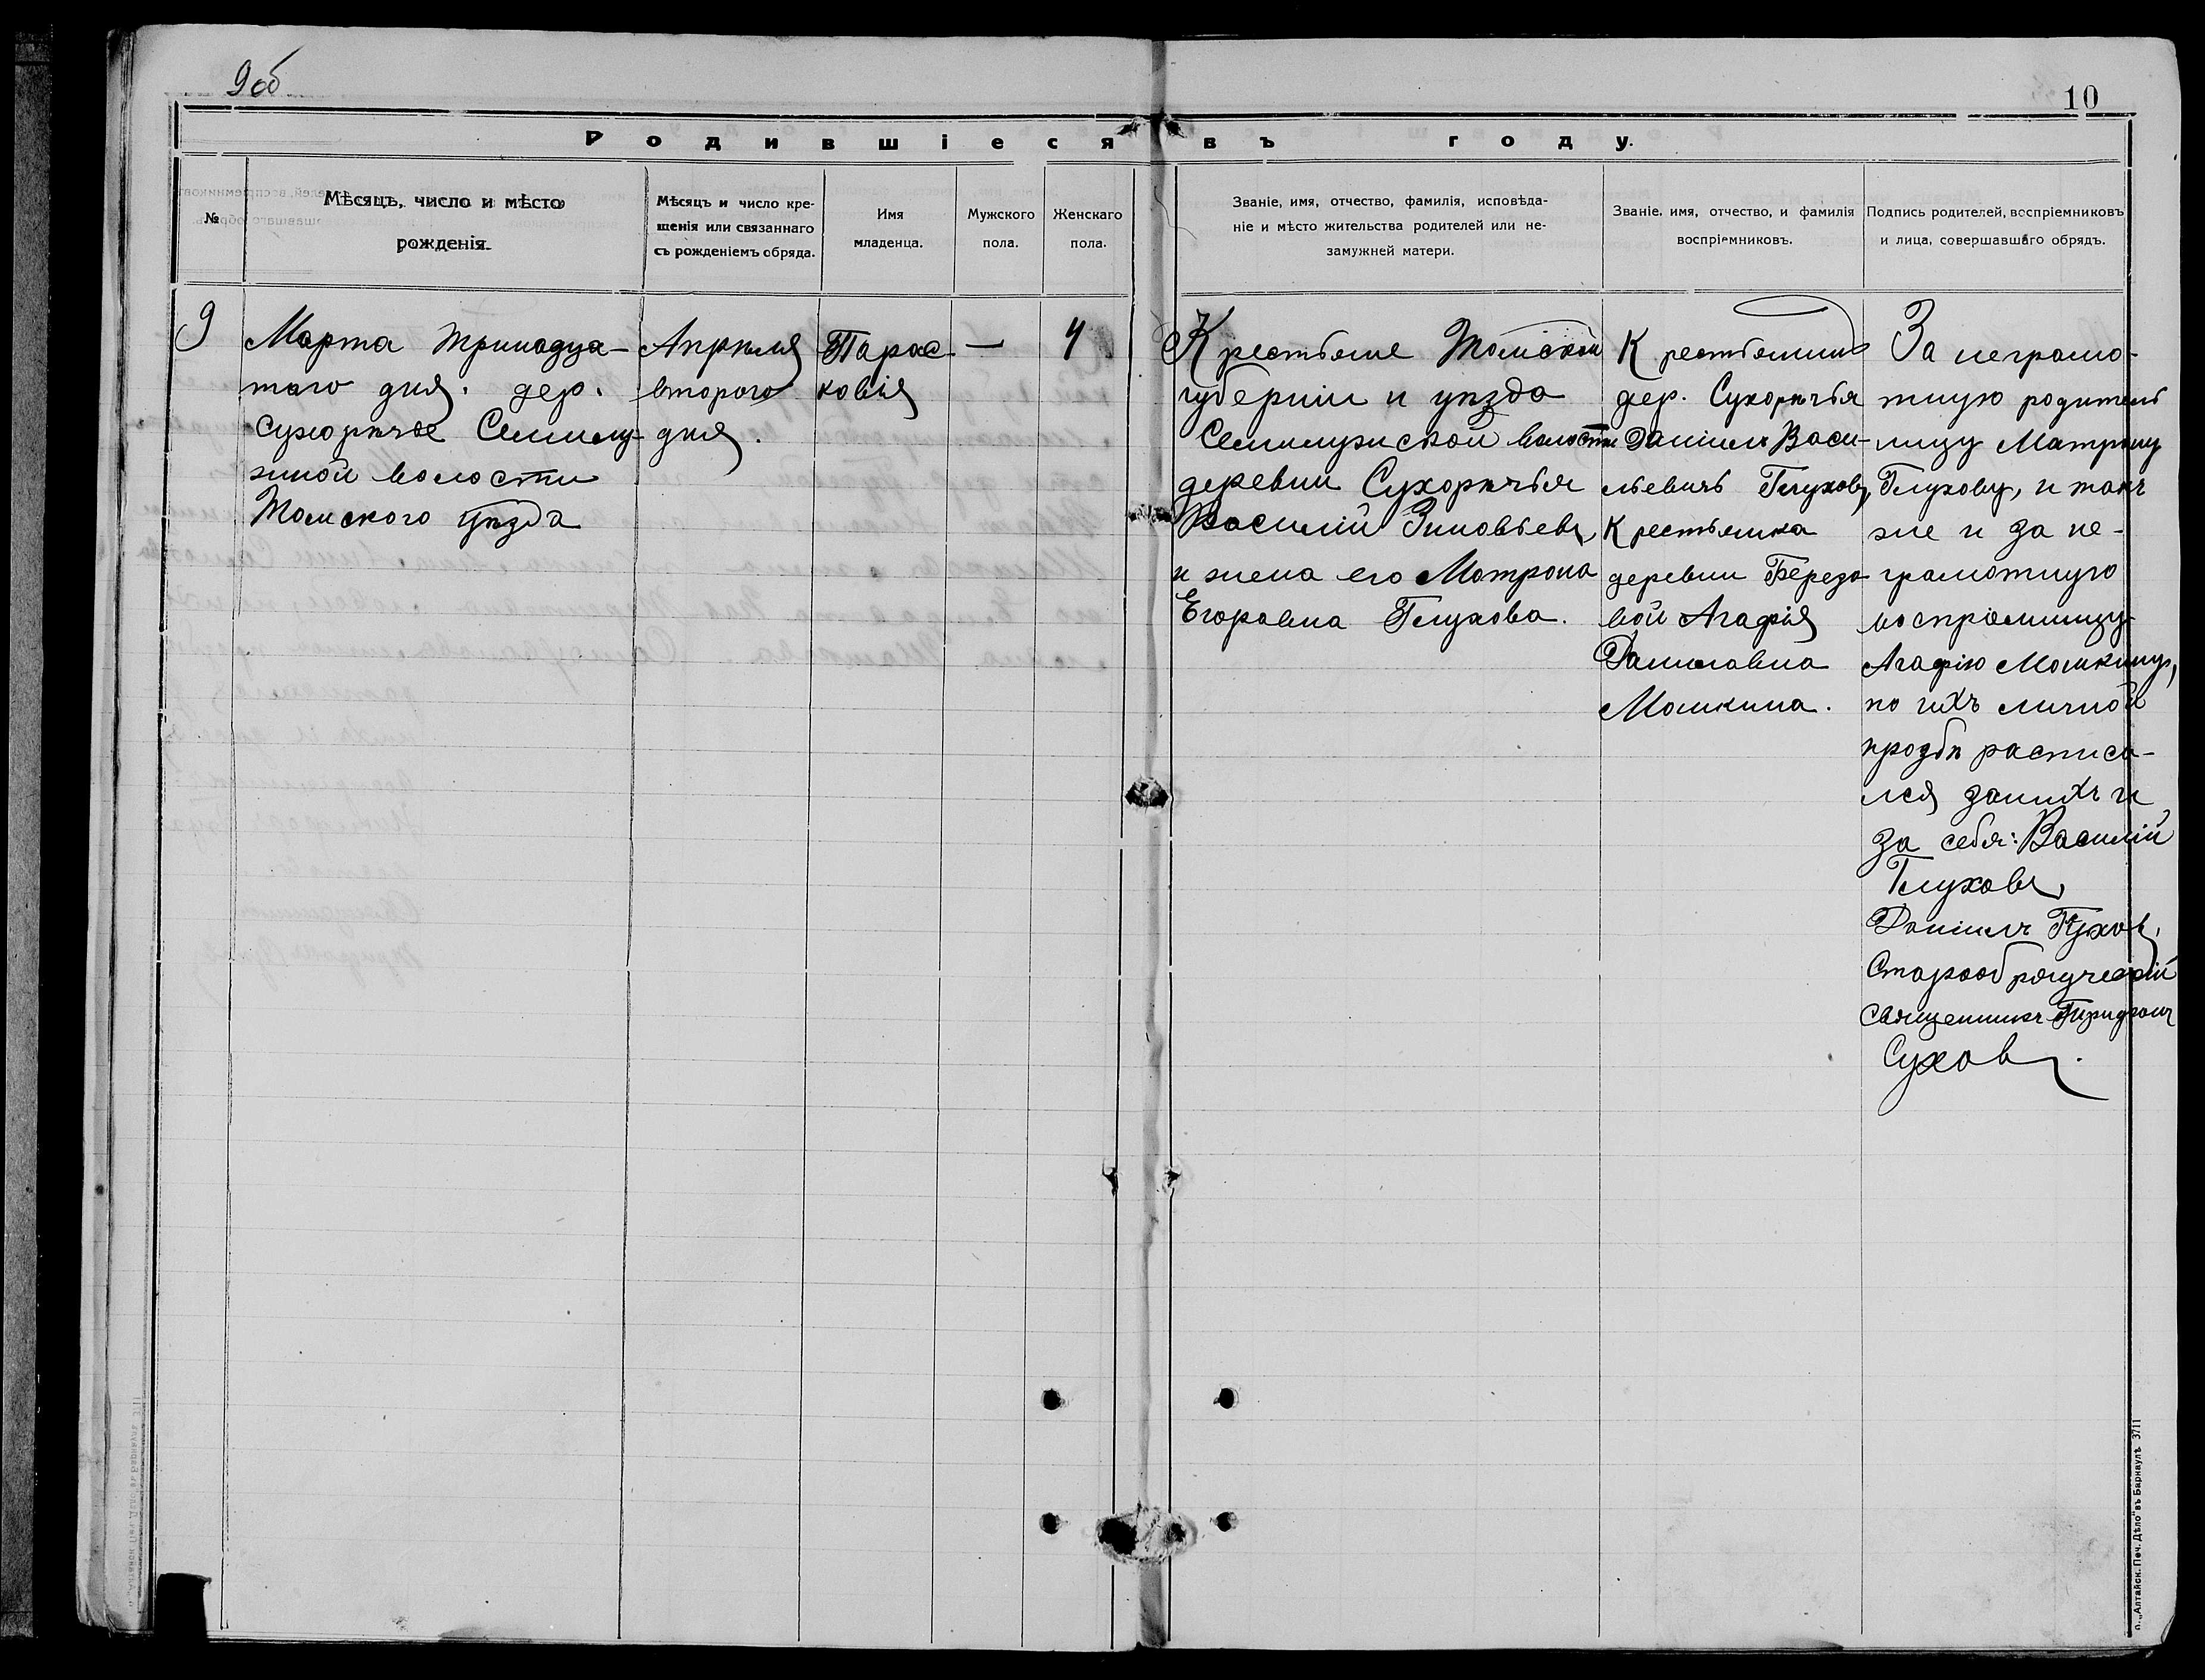 9об
10
Родившіеся въ году.
№
Мѣсяцъ, число и мѣсто
рожденія.
Мѣсяцъ и число кре-
щенія или связаннаго
съ рожденіемъ обряда.
Имя
младенца.
Мужского
пола.
Женскаго
пола.
Званіе, имя, отчество, фамилія, исповѣда-
ніе и мѣсто жительства родителей или не-
замужней матери.
Званіе, имя, отчество, и фамилія
воспріемниковъ.
Подпись родителей, воспріемниковъ
и лица, совершавшаго обрядъ.
9
Марта тринадца-
таго дня. дер.
Сухорѣчье Семилу-
жной волости
Томского уѣзда
Апрѣля
второго
дня.
Парас-
ковія
—
4
Крестьяне Томской
губерніи и уѣзда
Семилужской волости
деревни Сухорѣчья
Василій Зиновьевъ
и жена его Матрона
Егоровна Глухова.
Крестьянинъ
дер. Сухорѣчья
Даніилъ Васи-
льевичъ Глуховъ,
Крестьянка
деревни Березо-
вой Агафія
Даниловна
Мошкина.
За неграмо-
тную родитель-
ницу Матрону
Глухову, и такъ
же и за не-
грамотную
воспріемницу
Агафію Мошкину,
по ихъ личной
прозбѣ расписа-
лся занихъ и
за себя: Василій
Глуховъ,
Даніилъ Глухов,
Старообрядческій
священникъ Спиридонъ
Сухов.
О. „Алтайск. Печ. Дѣло" въ Барнаулѣ 3711